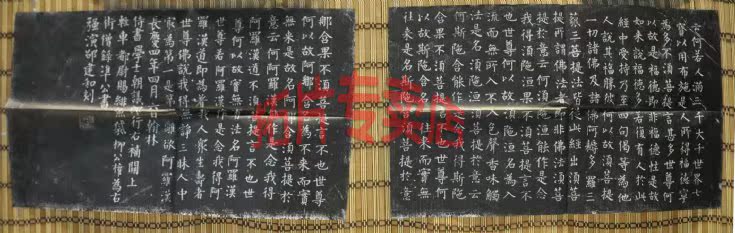 云何若人滿三千大千世界七
寶以用布施是人所得福德寧
為多不須菩提言甚多世尊何
以故是福德即非福德性是故
如來說福德多若復有人於此
經中受持乃至四句偈等為他
人說其福勝彼何以故須菩提
一切諸佛及諸佛阿耨多羅三
藐三菩提法皆從此經出須菩
提所謂佛法者即非佛法須菩
提於意云何須陀洹能作是念
我得須陀洹果不須菩提言不
也世尊何以故須陀洹名為入
流而無所入不入色聲香味觸
法是名須陀洹須菩提於意云
何斯陀含能作是念我得斯陀
含果不須菩提言不也世尊何
以故斯陀含名一往來而實無
往來是名斯陀含須菩提於意
那含果不須菩提言不也世尊
何以故阿那含名為不來而實
無來是故名阿那含須菩提於
意云何阿羅漢能作是念我得
阿羅漢道不須菩提言不也世
尊何以故實無有法名阿羅漢
世尊若阿羅漢作是念我得阿
羅漢道即為著我人眾生壽者
世尊佛說我得無諍三昧人中
最為第一是第一離欲阿羅漢
長慶四年四月六日翰林
侍書學士朝議郎行右補闕上
輕車都尉賜緋魚袋柳公權為右
街僧錄準公書
強演邵建和刻
拓片专卖店